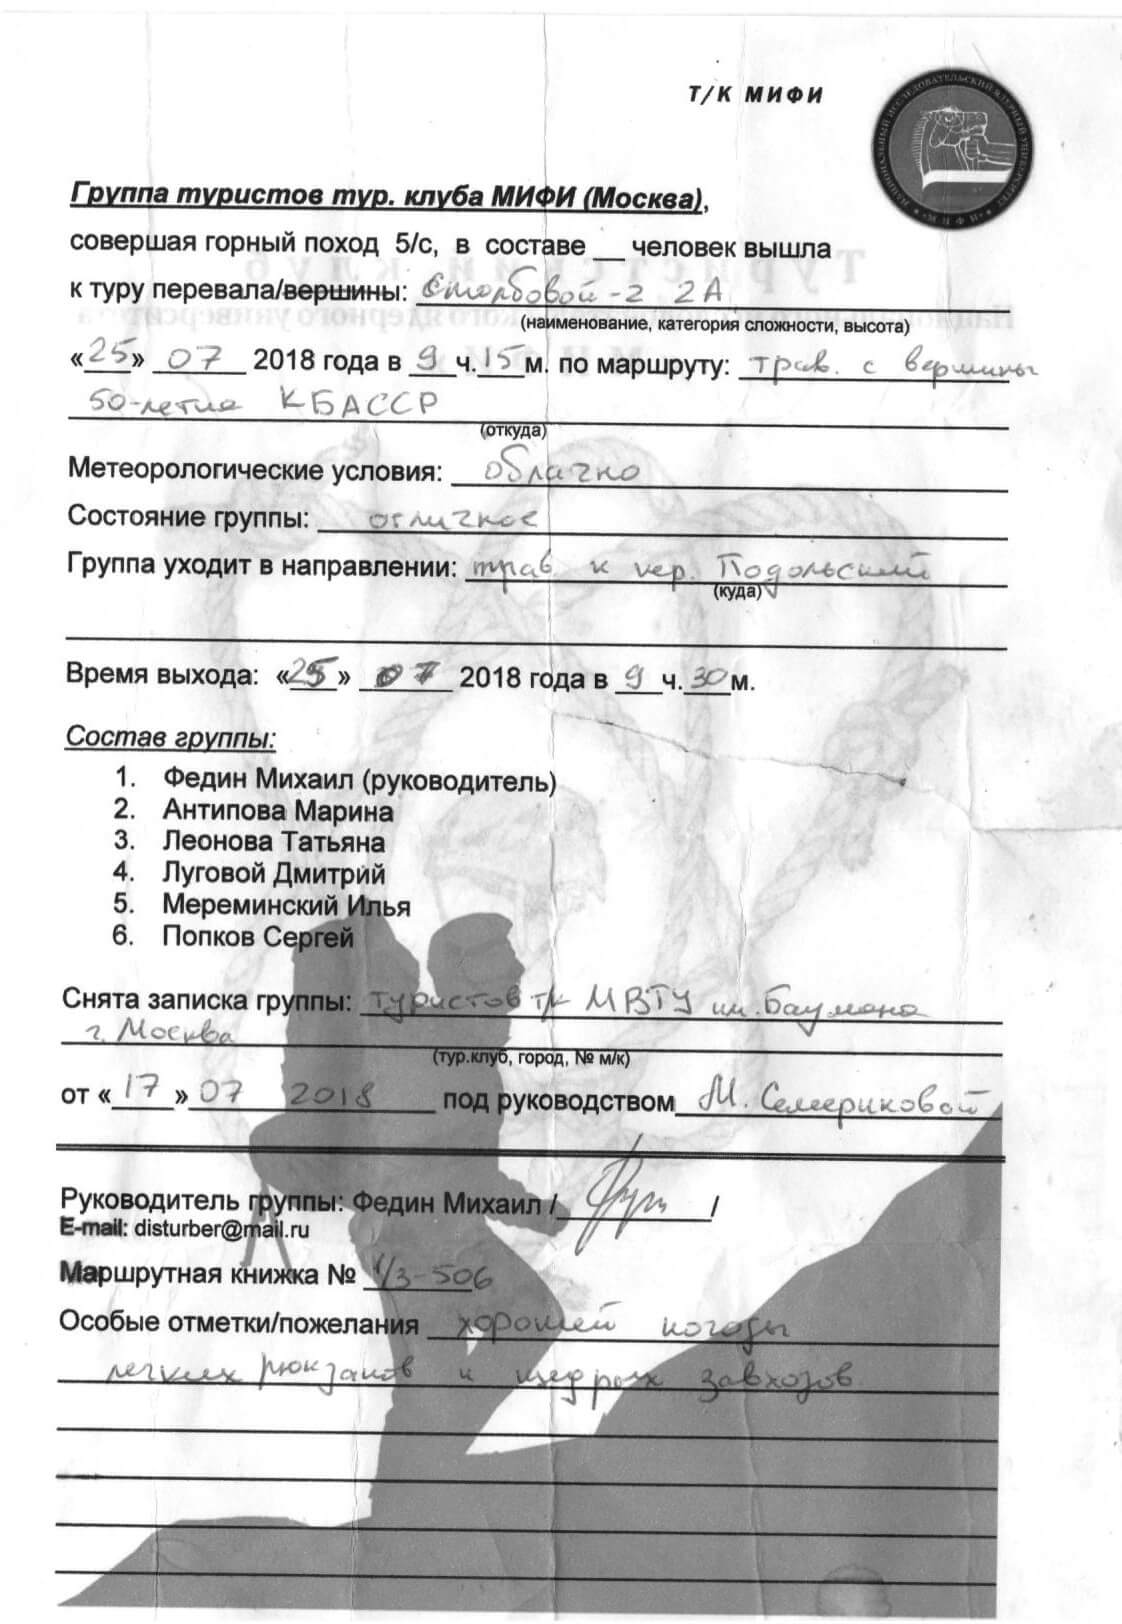 Т/К МИФИ
НАЦИОНАЛЬНЫЙ ИССЛЕДОВАТЕЛЬСКИЙ ЯДЕРНЫЙ УНИВЕРСИТЕТ
«МИФИ»
Группа туристов тур. клуба МИФИ (Москва),
совершая горный поход 5/с, в составе __ человек вышла
к туру перевала/вершины: Столбовой-2 2А
(наименование, категория сложности, высота)
«25» 07 2018 года в 9 ч. 15 м. по маршруту: трав. с вершины
50-летие КБАССР
(откуда)
Метеорологические условия: облачно
Состояние группы: отличное
Группа уходит в направлении: трав. к пер. Подольский
(куда)
Время выхода: «25» 07 2018 года в 9 ч. 30 м.
Состав группы:
1. Федин Михаил (руководитель)
2. Антипова Марина
3. Леонова Татьяна
4. Луговой Дмитрий
5. Мереминский Илья
6. Попков Сергей
Снята записка группы: туристов т/к МВТУ им. Баумана
г. Москва
(тур.клуб, город, № м/к)
от «17» 07 2018 под руководством М. Семериковой
Руководитель группы: Федин Михаил / /
E-mail: disturber@mail.ru
Маршрутная книжка № 1/3-506
Особые отметки/пожелания хорошей погоды
легких рюкзаков и щедрых завхозов